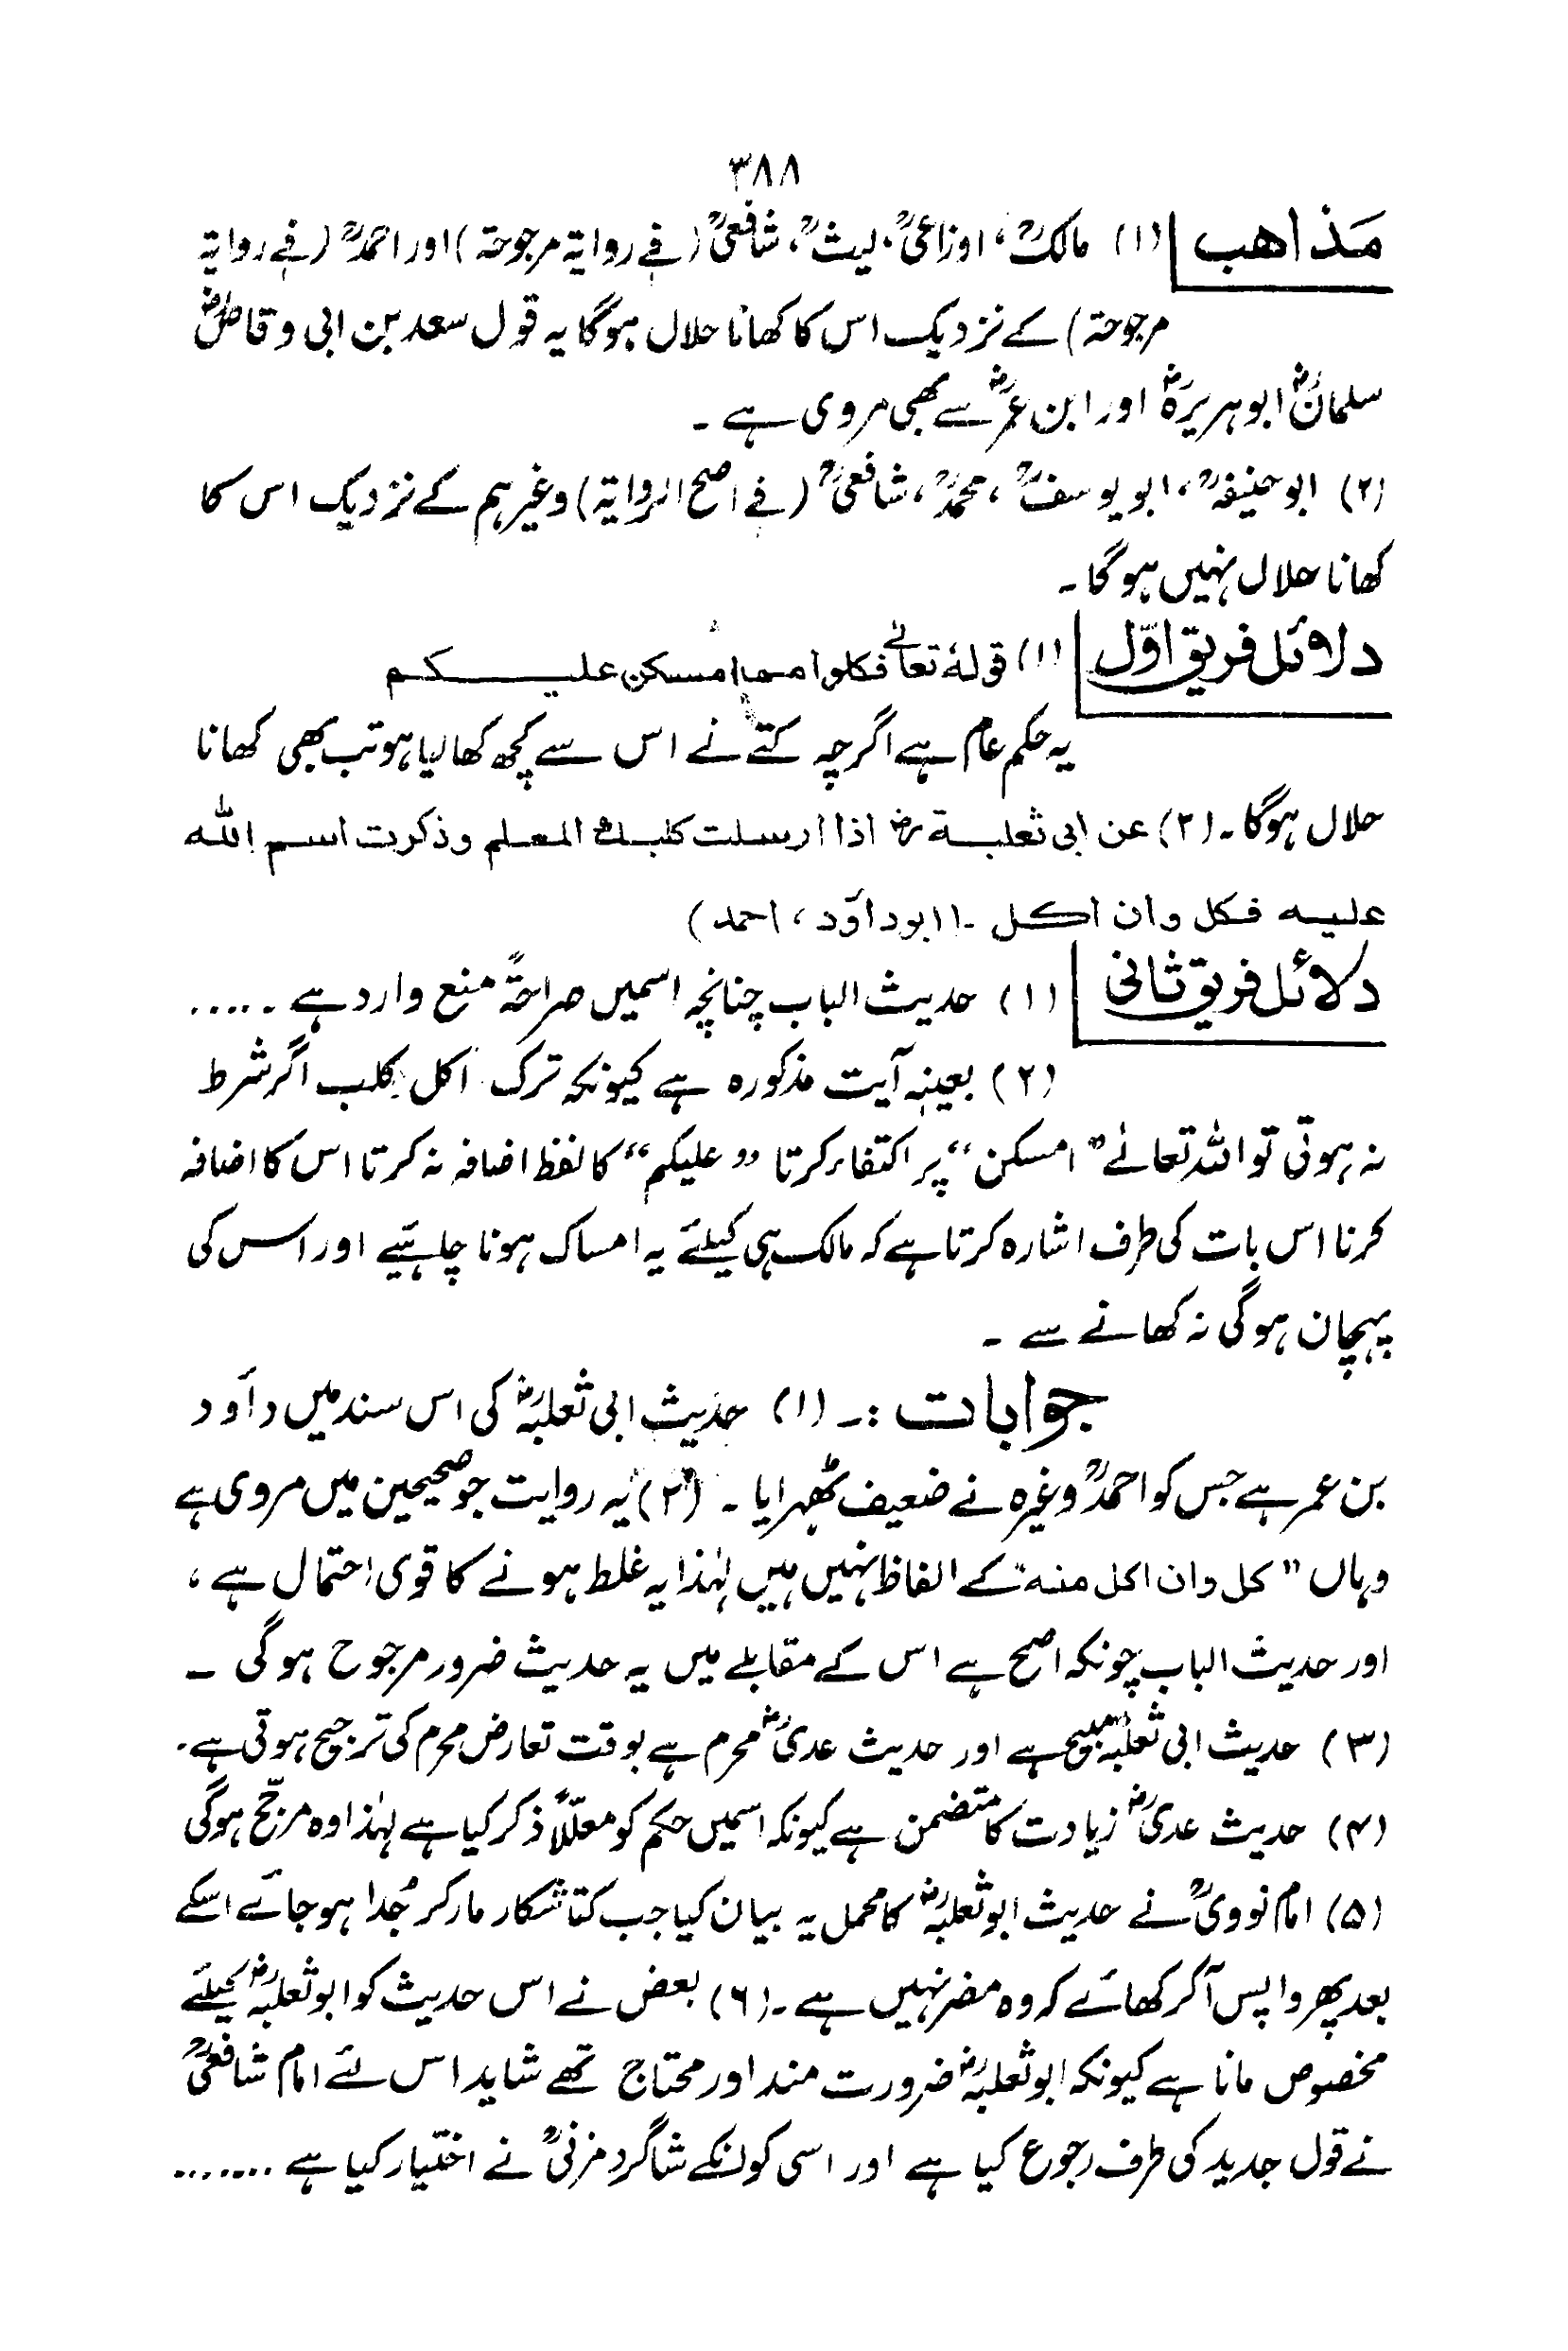 ۳۸۸
مَذاھب (۱) مالکؒ، اوزاعیؒ، لیثؒ، شافعیؒ (فے روایۃ مرجوحۃ) اور احمدؒ (فے روایۃ
مرجوحۃ) کے نزدیک اس کا کھانا حلال ہوگا یہ قول سعد بن ابی وقاصؓ
سلمانؓ ابوہریرہؓ اور ابن عمرؓ سے بھی مروی ہے ۔
(۲) ابوحنیفہؒ، ابویوسفؒ، محمدؒ، شافعیؒ (فے اصح الروایۃ) وغیرہم کے نزدیک اس کا
کھانا حلال نہیں ہوگا ۔
دلائل فریق اوّل (۱) قولہٗ تعالےٰ فکلوا مما امسکن علیکم
یہ حکم عام ہے اگرچہ کتے نے اس سے کچھ کھالیا ہو تب بھی کھانا
حلال ہوگا ۔ (۲) عن ابی ثعلبۃ رضؓ اذا ارسلت کلبک المعلم وذکرت اسم اللہ
علیہ فکل وان اکل ۔ (ابوداؤد، احمد)
دلائل فریق ثانی (۱) حدیث الباب چنانچہ اسمیں صراحۃً منع وارد ہے ۔.....
(۲) بعینہٖ آیت مذکورہ ہے کیونکہ ترک اکل کلب اگر شرط
نہ ہوتی تو اللہ تعالےٰ "امسکن" پر اکتفاء کرتا "علیکم" کا لفظ اضافہ نہ کرتا اس کا اضافہ
کرنا اس بات کی طرف اشارہ کرتا ہے کہ مالک ہی کیلئے یہ امساک ہونا چاہئیے اور اس کی
پہچان ہوگی نہ کھانے سے ۔
جوابات :۔ (۱) حدیث ابی ثعلبہؓ کی اس سند میں داؤد
بن عمر ہے جس کو احمدؒ وغیرہ نے ضعیف ٹھہرایا ۔ (۲) یہ روایت جو صحیحین میں مروی ہے
وہاں "کل وان اکل منہ" کے الفاظ نہیں ہیں لہٰذا یہ غلط ہونے کا قوی احتمال ہے،
اور حدیث الباب چونکہ اصح ہے اس کے مقابلے میں یہ حدیث ضرور مرجوح ہوگی ۔
(۳) حدیث ابی ثعلبہؓ مبیح ہے اور حدیث عدیؓ محرم ہے بوقت تعارض محرم کی ترجیح ہوتی ہے ۔
(۴) حدیث عدیؓ زیادت کا متضمن ہے کیونکہ اسمیں حکم کو معلّلاً ذکر کیا ہے لہٰذا وہ مرجّح ہوگی
(۵) امام نوویؒ نے حدیث ابوثعلبہؓ کا محمل یہ بیان کیا جب کتا شکار مار کر جُدا ہوجائے اسکے
بعد پھر واپس آکر کھائے کہ وہ مضر نہیں ہے ۔ (۶) بعض نے اس حدیث کو ابوثعلبہؓ کیلئے
مخصوص مانا ہے کیونکہ ابوثعلبہؓ ضرورت مند اور محتاج تھے شاید اس لئے امام شافعیؒ
نے قول جدید کی طرف رجوع کیا ہے اور اسی کو انکے شاگرد مزنیؒ نے اختیار کیا ہے .......